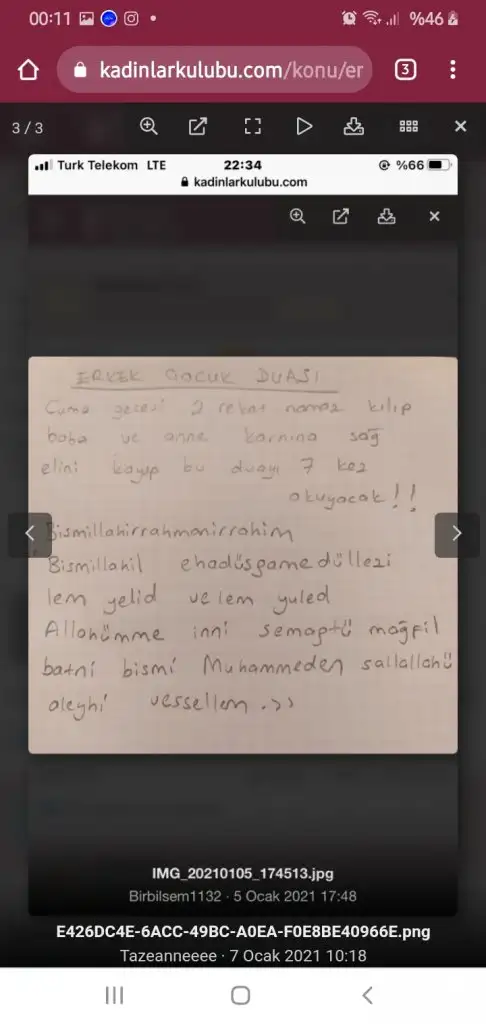 00:11 %46
kadinlarkulubu.com/konu/er 3
3 / 3
Turk Telekom LTE 22:34 %66
kadinlarkulubu.com
ERKEK ÇOCUK DUASI
Cuma gecesi 2 rekat namaz kılıp
baba ve anne karnına sağ
elini koyup bu duayı 7 kez
okuyacak!!
Bismillahirrahmanirrahim
Bismillahil ehadüsgamedüllezi
lem yelid velem yuled
Allahümme inni semaptü mağfil
batni bismi Muhammeden sallallahü
aleyhi vessellem.
IMG_20210105_174513.jpg
Birbilsem1132 · 5 Ocak 2021 17:48
E426DC4E-6ACC-49BC-A0EA-F0E8BE40966E.png
Tazeanneeee · 7 Ocak 2021 10:18